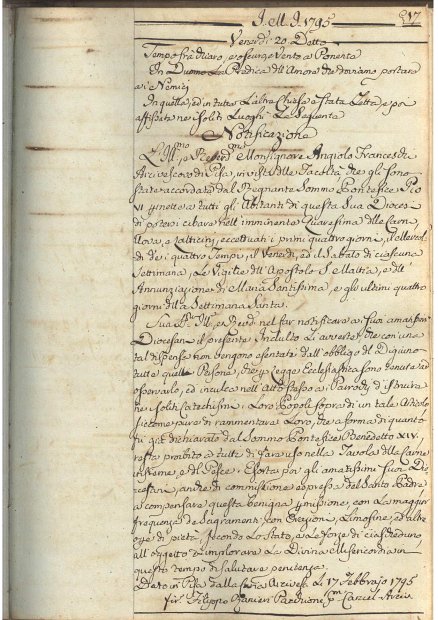 I. M. I. 1795
217
Venerdì 20. Detto
Tempo frà Chiaro, e oscuro, e Vento a Ponente
In Duomo La Predica dell'Amore che doviamo portare
a i Nemici
In quella, ed in tutte L'altre Chiese è stata Letta, e poi
affissata ne Soliti Luoghi La Seguente
Notificazione
L'Ill.mo e Reverd.mo Monsignore Angiolo Franceschi
Arcivescovo di Pisa, in vista delle Facoltà che gli sono
state accordate dal Regnante Sommo Pontefice Pio
permette a tutti gli Abitanti di questa Sua Diocesi
di potersi cibare nell'imminente Quaresima delle Carni
Uova, e Latticinj, eccettuati i primi quattro giorni, il Mercoledì
di de i quattro Tempi, i Venerdì, ed il Sabato di ciascuna
Settimana, Le Vigilie dell'Apostolo S. Mattia, e dell'
Annunziazione di Maria Santissima, e gli ultimi quattro
giorni della Settimana Santa.
Sua Ill. e Rev.ma nel far notificare a i Suoi amatissimi
Diocesani il presente Indulto Li avverte, che con una
tal dispensa non vengono esentate dall'obbligo del Digiuno
tutte quelle Persone, che per Legge Ecclesiastica sono tenute ad
osservarlo, ed inculca nell'atto stesso a i Parrochi d'istruire
ne Soliti Catechismi i Loro Popoli sopra di un tale Articolo
siccome pure di rammentare Loro, che a forma di quanto
fù già dichiarato dal Sommo Pontefice Benedetto XIV.
resta proibito a tutti di fare uso nella Tavola della Carne
insieme, e del Pesce. Esorta poi gli amatissimi suoi Dio
cesani, anche di commissione espressa del Santo Padre
a compensare questa benigna permissione, con La maggior
frequenza de Sagramenti, con Orazioni, Limosine, ed altre
opere di pietà, secondo Lo stato, e Le forze di ciascheduno
all'oggetto d'implorare La Divina Misericordia in
questo tempo di salutare penitenza.
Dato in Pisa dalla Arcivesc. Li 17 Febbrajo 1795
Filippo Ranieri Cancel. Arciv.